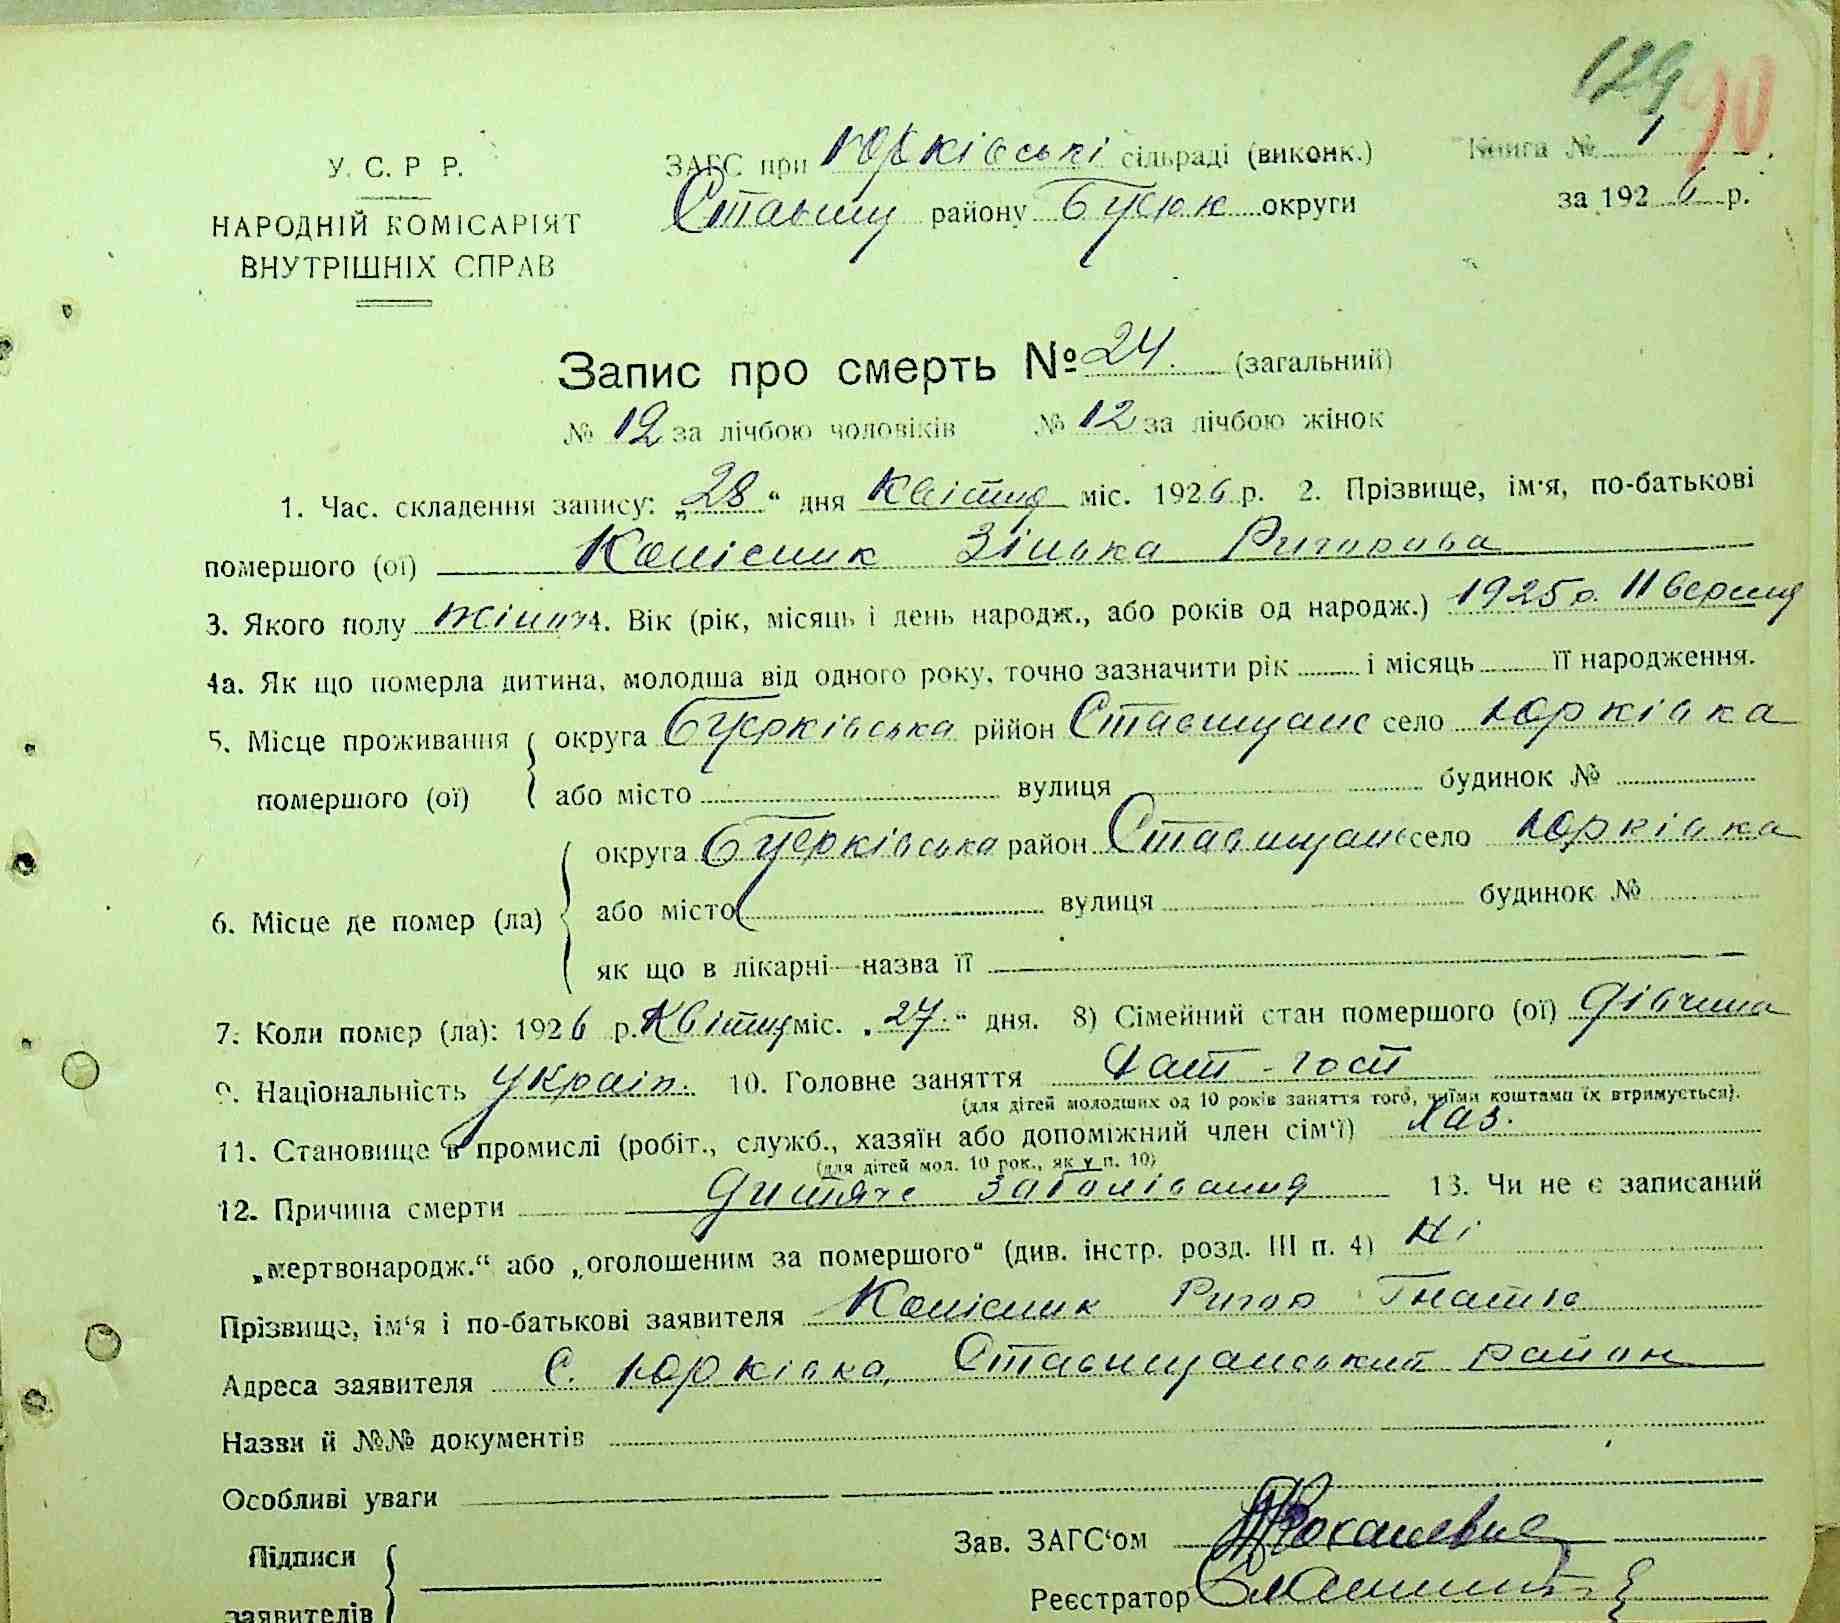 129 90
У. С. Р Р.
НАРОДНІЙ КОМІСАРІЯТ
ВНУТРІШНІХ СПРАВ
ЗАГС при Юрківські сільраді (виконк.)
Ставищ району округи
Книга № 1
за 1926 р.
Запис про смерть № 24. (загальний)
№ 12 за лічбою чоловіків № 12 за лічбою жінок
1. Час. складення запису: „28“ дня Квітня міс. 1926 р. 2. Прізвище, ім'я, по-батькові
помершого (ої) Колісник Зінька Ригорова
3. Якого полу жіноч 4. Вік (рік, місяць і день народж., або років од народж.) 1925 р. 11 вересня
4а. Як що померла дитина, молодша від одного року, точно зазначити рік і місяць її народження.
5. Місце проживання округа Бцерківська рййон Ставищанс село Юрківка
помершого (ої) або місто вулиця будинок №
округа Бцерківська район Ставищанс село Юрківка
6. Місце де помер (ла) або місто вулиця будинок №
як що в лікарні—назва її
7. Коли помер (ла): 1926 р. Квітня міс. „27.“ дня. 8) Сімейний стан помершого (ої) дівчина
9. Національність Україн. 10. Головне заняття
(для дітей молодших од 10 років заняття того, чиїми коштами їх втримується).
11. Становище в промислі (робіт., служб., хазяїн або допоміжний член сім'ї) хаз.
(для дітей мол. 10 рок., як у п. 10)
12. Причина смерти дитяче заболівания 13. Чи не є записаний
„мертвонародж.“ або „оголошеним за помершого“ (див. інстр. розд. III п. 4) Ні
Прізвище, ім'я і по-батькові заявителя Колісник Ригор Гнатів
Адреса заявителя С. Юрківка, Ставищанський район
Назви й №№ документів
Особливі уваги
Підписи
заявителів
Зав. ЗАГС'ом
Реєстратор